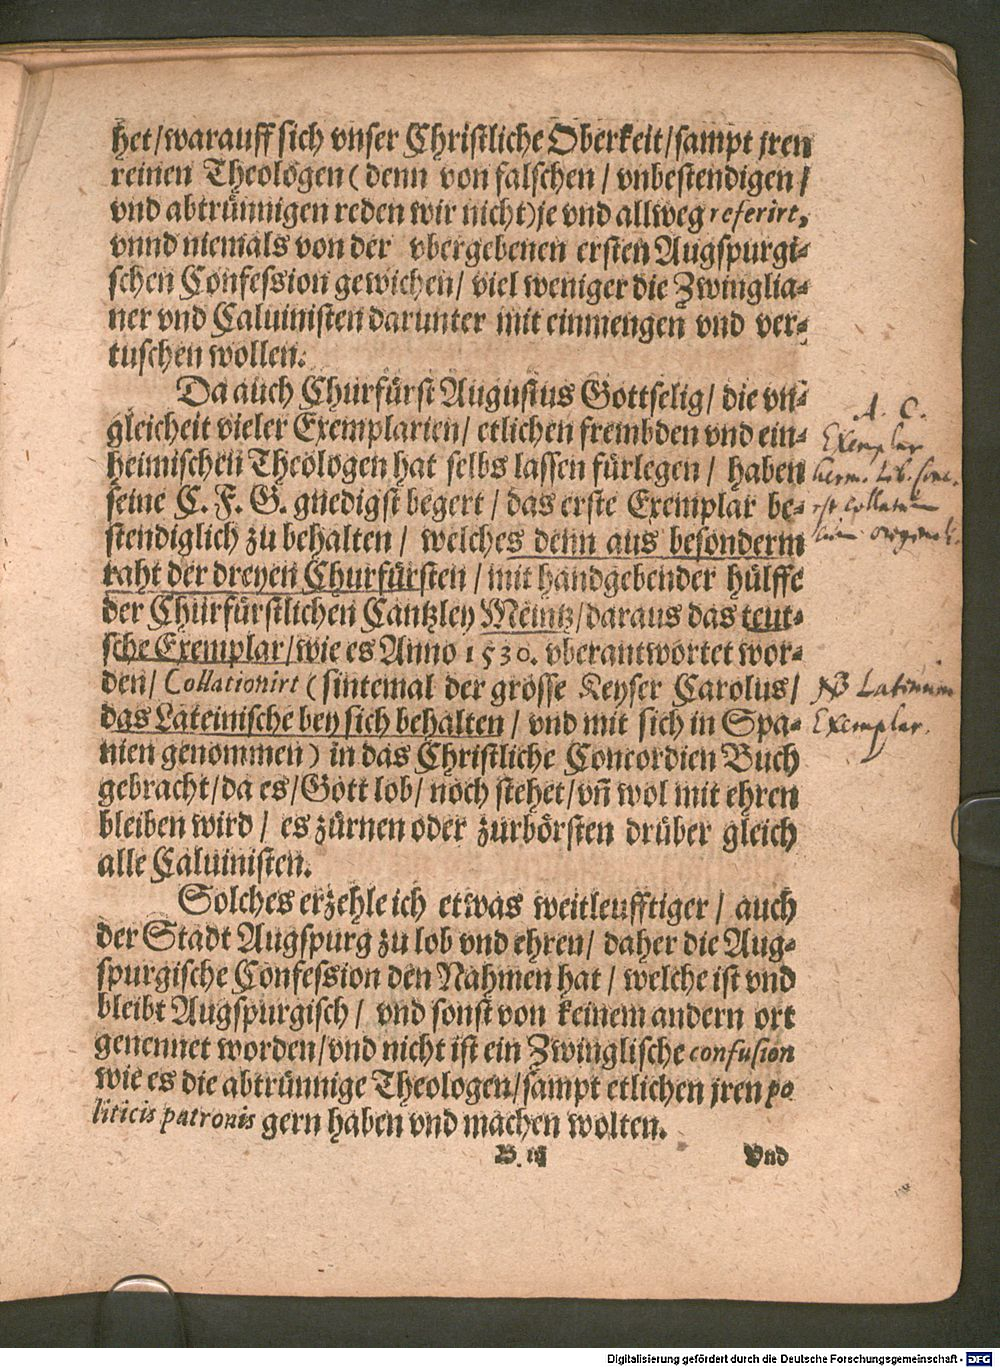 het/warauff sich vnser Christliche Oberkeit/sampt jren
reinen Theologen (denn von falschen / vnbestendigen /
vnd abtrünnigen reden wir nicht) je vnd allweg referirt,
vnnd niemals von der vbergebenen ersten Augspurgi-
schen Confession gewichen/ viel weniger die Zwinglia-
ner vnd Caluinisten darunter mit einmengen vnd ver-
tuschen wollen.
Da auch Churfürst Augustus Gottselig/ die vn-
gleicheit vieler Exemplarien/ etlichen frembden vnd ein-
heimischen Theologen hat selbs lassen fürlegen / haben
seine C. F. G. gnedigst begert / das erste Exemplar be-
stendiglich zu behalten / welches denn aus besonderm
raht der dreyen Churfürsten / mit handgebender hülffe
der Churfürstlichen Cantzley Meintz/daraus das teut-
sche Exemplar/wie es Anno 1530. vberantwortet wor-
den/ Collationirt (sintemal der grosse Keyser Carolus/
das Lateinische bey sich behalten / vnd mit sich in Spa-
nien genommen) in das Christliche Concordien Buch
gebracht/da es/Gott lob/ noch stehet/vñ wol mit ehren
bleiben wird / es zürnen oder zurbörsten drüber gleich
alle Caluinisten.
Solches erzehle ich etwas weitleufftiger / auch
der Stadt Augspurg zu lob vnd ehren/ daher die Aug-
spurgische Confession den Nahmen hat / welche ist vnd
bleibt Augspurgisch / vnd sonst von keinem andern ort
genennet worden/vnd nicht ist ein Zwinglische confusion
wie es die abtrünnige Theologen/sampt etlichen jren po
liticis patronis gern haben vnd machen wolten.
B. iij Vnd
A. C.
Exemplar
est collatum
NB Latinum
Exemplar.
Digitalisierung gefördert durch die Deutsche Forschungsgemeinschaft - DFG